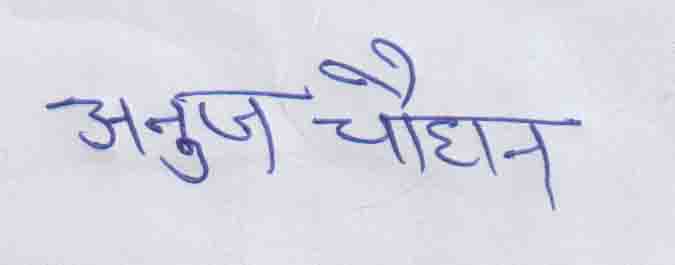 अनुज चौहान